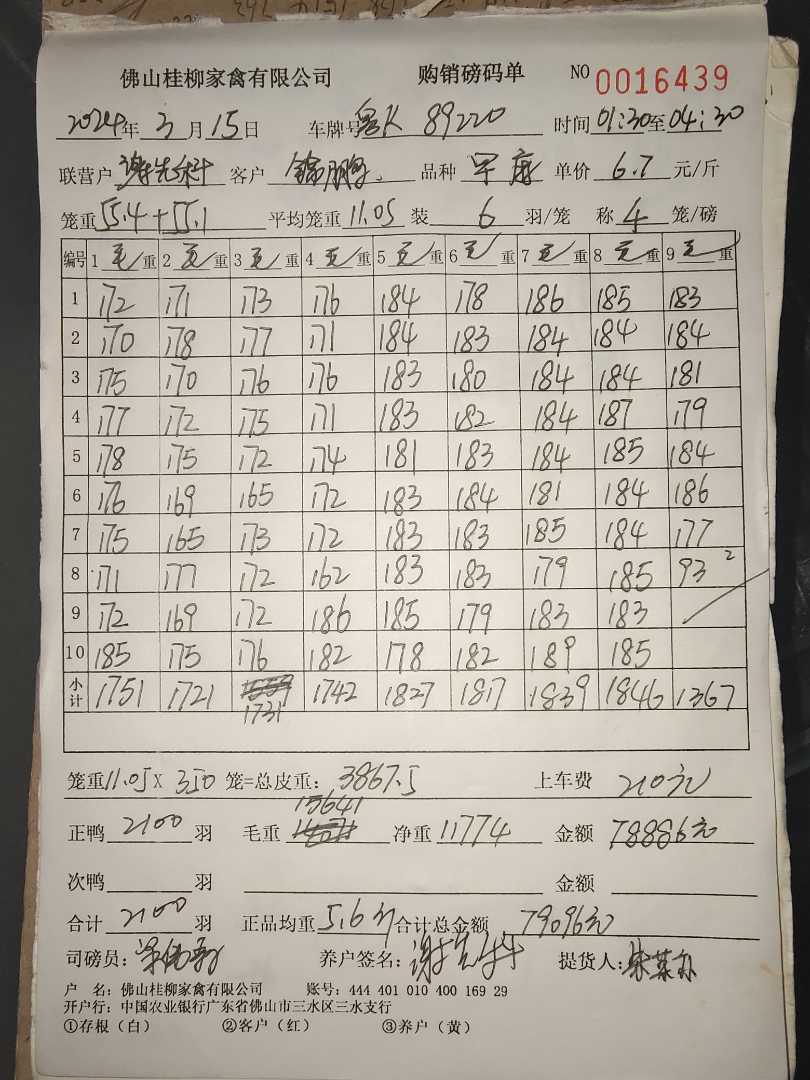 佛山桂柳家禽有限公司 购销磅码单 NO 0016439
2024年 3 月 15 日 车牌号 粤K 89220 时间 01:30 至 04:30
联营户 谢先科 客户 锦鹏 品种 单价 6.7 元/斤
笼重 55.4+55.1 平均笼重 11.05 装 6 羽/笼 称 4 笼/磅
编号 1 毛重 2 毛重 3 毛重 4 毛重 5 毛重 6 毛重 7 毛重 8 毛重 9 毛重
1 172 171 173 176 184 178 186 185 183
2 170 178 177 171 184 183 184 184 184
3 175 170 176 176 183 180 184 184 181
4 177 172 175 171 183 182 184 187 179
5 178 175 172 174 181 183 184 185 184
6 176 169 165 172 183 184 181 184 186
7 175 165 173 172 183 183 185 184 177
8 171 177 172 162 183 183 179 185 93 2
9 172 169 172 186 185 179 183 183
10 185 175 176 182 178 182 189 185
小计 1751 1721 1731 1742 1827 1817 1839 1846 1367
笼重 11.05 X 350 笼=总皮重: 3867.5 上车费 210元
正鸭 2100 羽 毛重 15641 净重 11774 金额 78886元
次鸭 羽 金额
合计 2100 羽 正品均重 5.6 合计总金额 79096元
司磅员: 养户签名: 谢先科 提货人:
户 名: 佛山桂柳家禽有限公司 账号: 444 401 010 400 169 29
开户行: 中国农业银行广东省佛山市三水区三水支行
①存根（白） ②客户（红） ③养户（黄）